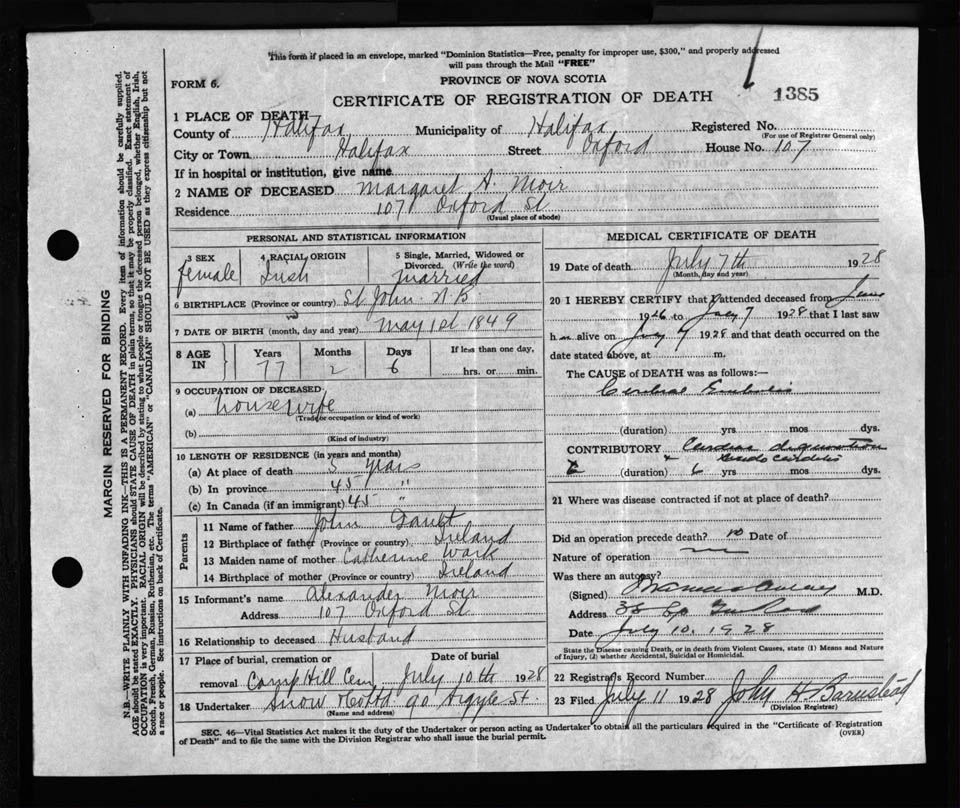 This form if placed in an envelope, marked "Dominion Statistics—Free, penalty for improper use, $300," and properly addressed
will pass through the Mail "FREE"
FORM 6.
PROVINCE OF NOVA SCOTIA
CERTIFICATE OF REGISTRATION OF DEATH
1385
1 PLACE OF DEATH
County of Halifax Municipality of Halifax Registered No.
(For use of Registrar General only)
City or Town Halifax Street Oxford House No. 107
If in hospital or institution, give name
2 NAME OF DECEASED Margaret A. Moir
Residence 107 Oxford St
(Usual place of abode)
MARGIN RESERVED FOR BINDING
N.B.—WRITE PLAINLY WITH UNFADING INK—THIS IS A PERMANENT RECORD. Every item of information should be carefully supplied.
AGE should be stated EXACTLY. PHYSICIANS should STATE CAUSE OF DEATH in plain terms, so that it may be properly classified. Exact statement of
OCCUPATION is very important. RACIAL ORIGIN will be described by stating to what people or tongue the deceased person belonged, whether English, Irish,
Scotch, French, German, Russian, Ruthenian, etc. The terms "AMERICAN" or "CANADIAN" SHOULD NOT BE USED as they express citizenship but not
a race or people. See instructions on back of Certificate.
PERSONAL AND STATISTICAL INFORMATION
3 SEX
female
4 RACIAL ORIGIN
Irish
5 Single, Married, Widowed or
Divorced. (Write the word)
married
6 BIRTHPLACE (Province or country) St John N.B
7 DATE OF BIRTH (month, day and year) May 1st 1849
8 AGE IN
Years Months Days If less than one day,
77 2 6 hrs. or min.
9 OCCUPATION OF DECEASED
(a) housewife
(Trade or occupation or kind of work)
(b)
(Kind of industry)
10 LENGTH OF RESIDENCE (in years and months)
(a) At place of death 5 years
(b) In province 45 "
(c) In Canada (if an immigrant) 45 "
Parents
11 Name of father John Gault
12 Birthplace of father (Province or country) Ireland
13 Maiden name of mother Catherine Wark
14 Birthplace of mother (Province or country) Ireland
15 Informant's name Alexander Moir
Address 107 Oxford St
16 Relationship to deceased Husband
17 Place of burial, cremation or Date of burial
removal Camp Hill Cem July 10th 1928
18 Undertaker Snow & Co Ltd 90 Argyle St.
(Name and address)
MEDICAL CERTIFICATE OF DEATH
19 Date of death July 7th 1928
(Month, day and year)
20 I HEREBY CERTIFY that I attended deceased from June
1926 to July 7 1928 that I last saw
h alive on July 7 1928 and that death occurred on the
date stated above, at m.
The CAUSE of DEATH was as follows:—
(duration) yrs mos dys.
CONTRIBUTORY
(duration) 6 yrs mos dys.
21 Where was disease contracted if not at place of death?
Did an operation precede death? no Date of
Nature of operation
Was there an autopsy?
(Signed) M.D.
Address
Date July 10, 1928
State the Disease causing Death, or in death from Violent Causes, state (1) Means and Nature
of Injury, (2) whether Accidental, Suicidal or Homicidal.
22 Registrar's Record Number
23 Filed July 11 1928 John H Barnstead
(Division Registrar)
SEC. 46—Vital Statistics Act makes it the duty of the Undertaker or person acting as Undertaker to obtain all the particulars required in the "Certificate of Registration
of Death" and to file the same with the Division Registrar who shall issue the burial permit.
(OVER)